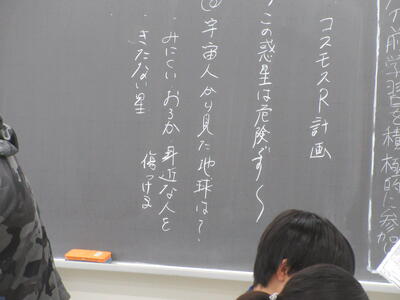 ケ前学習を積極的に参加
コスモスR計画
この惑星は危険です〜
宇宙人から見た地球は?
・みにくい おろか 身近な人を
傷つける
・きたない星